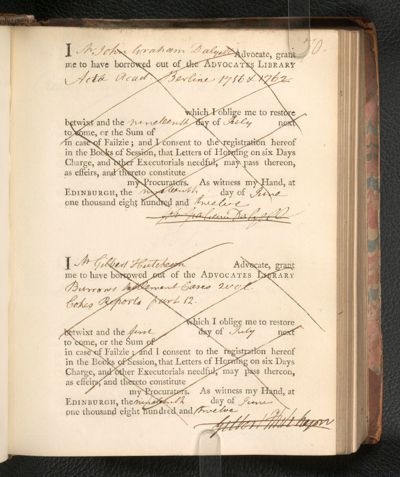 50.
I Mr John Graham Dalyell Advocate, grant
me to have borrowed out of the ADVOCATES LIBRARY
Acta Acad Berlin: 1756 & 1762
which I oblige me to restore
betwixt and the nineteenth day of July next
to come, or the Sum of
in case of Failzie; and I consent to the registration hereof
in the Books of Session, that Letters of Horning on six Days
Charge, and other Executorials needful, may pass thereon,
as effeirs, and thereto constitute
my Procurators. As witness my Hand, at
EDINBURGH, the nineteenth day of June
one thousand eight hundred and twelve
John Graham Dalyell
I Mr Gilbert Hutcheson Advocate, grant
me to have borrowed out of the ADVOCATES LIBRARY
Burrows Settlement Cases 2 vol.
Cokes Reports part 12.
which I oblige me to restore
betwixt and the first day of July next
to come, or the Sum of
in case of Failzie; and I consent to the registration hereof
in the Books of Session, that Letters of Horning on six Days
Charge, and other Executorials needful, may pass thereon,
as effeirs, and thereto constitute
my Procurators. As witness my Hand, at
EDINBURGH, the nineteenth day of June
one thousand eight hundred and twelve
Gilbert Hutcheson